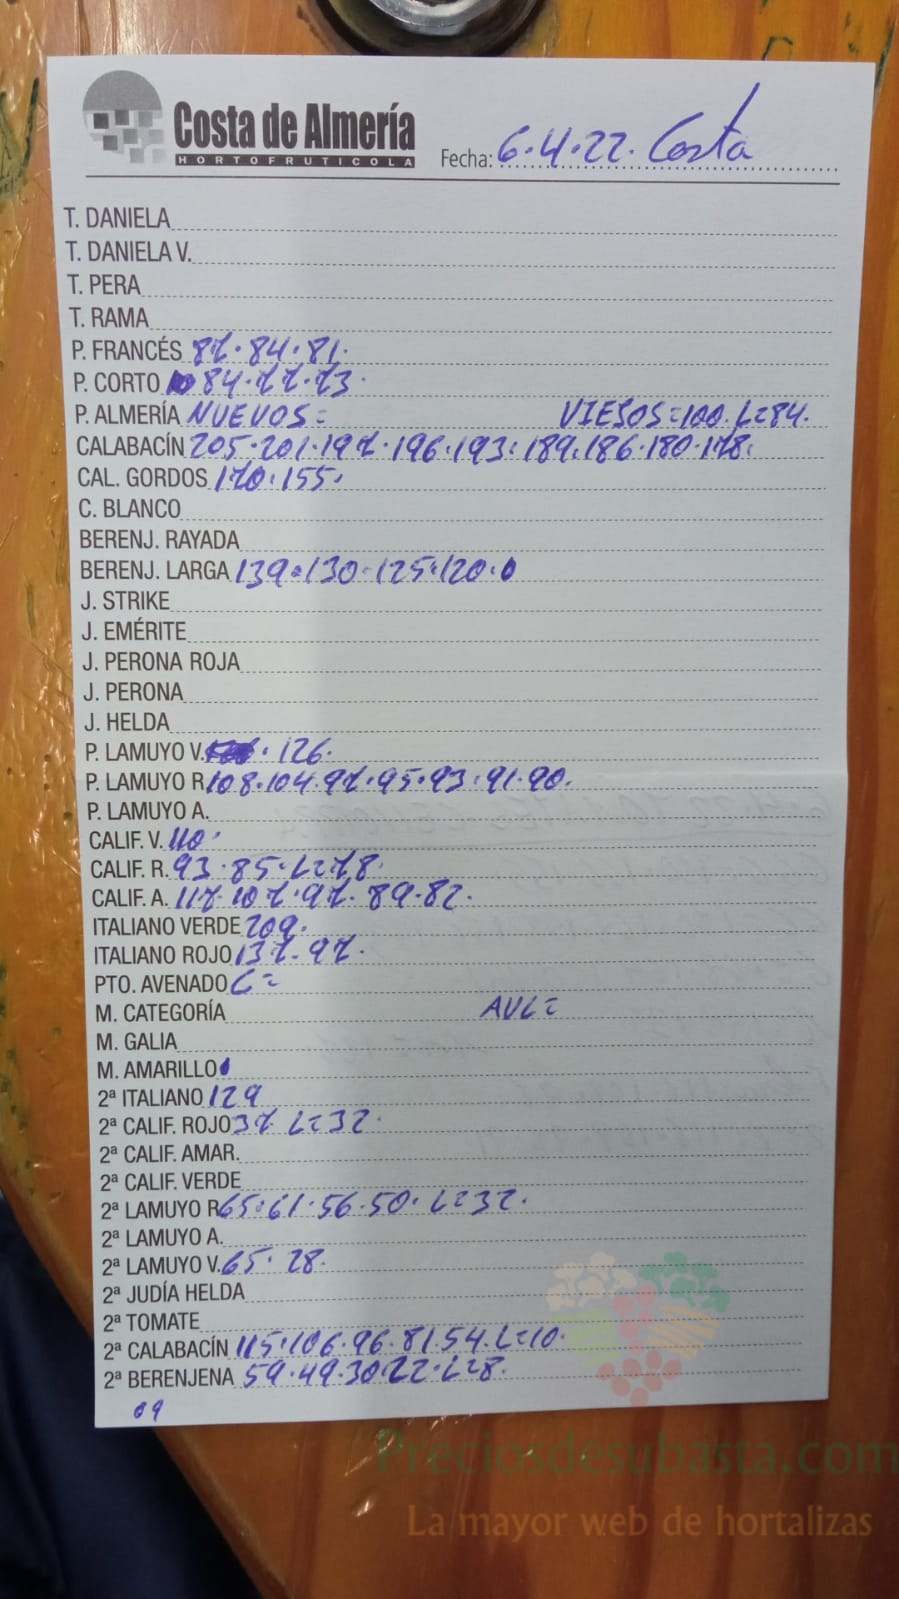 Costa de Almería
HORTOFRUTICOLA
Fecha: 6.4.22. Costa
T. DANIELA
T. DANIELA V.
T. PERA
T. RAMA
P. FRANCÉS 87.84.81.
P. CORTO 84.77.73.
P. ALMERÍA NUEVOS= VIEJOS=100. L=84.
CALABACÍN 205.201.197.196.193.189.186.180.178.
CAL. GORDOS 170.155.
C. BLANCO
BERENJ. RAYADA
BERENJ. LARGA 139.130.125.120.
J. STRIKE
J. EMÉRITE
J. PERONA ROJA
J. PERONA
J. HELDA
P. LAMUYO V. 126.
P. LAMUYO R. 108.104.97.95.93.91.90.
P. LAMUYO A.
CALIF. V. 110.
CALIF. R. 93.85.L=78.
CALIF. A. 117.107.97.89.82.
ITALIANO VERDE 209.
ITALIANO ROJO 137.97.
PTO. AVENADO C=
M. CATEGORÍA AVL=
M. GALIA
M. AMARILLO
2ª ITALIANO 129
2ª CALIF. ROJO 37 L=32.
2ª CALIF. AMAR.
2ª CALIF. VERDE
2ª LAMUYO R 65.61.56.50. L=32.
2ª LAMUYO A.
2ª LAMUYO V. 65.28.
2ª JUDÍA HELDA
2ª TOMATE
2ª CALABACÍN 115.106.96.81.54.L=10.
2ª BERENJENA 59.49.30.22.L=8.
09
Preciosdesubasta.com
La mayor web de hortalizas